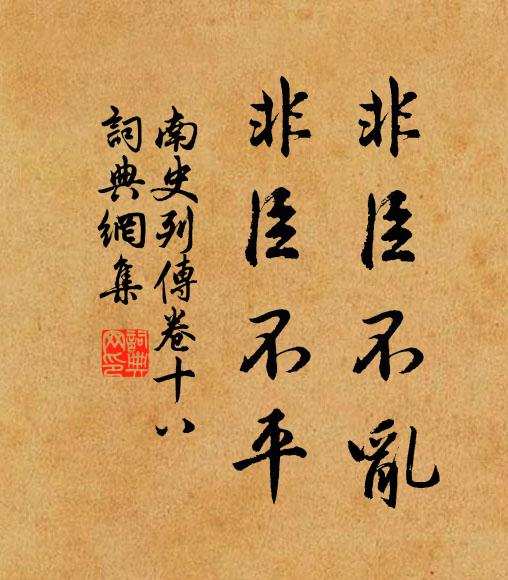 非臣不亂
非臣不平
南史列傳卷十八
詞典網集
詞典網印